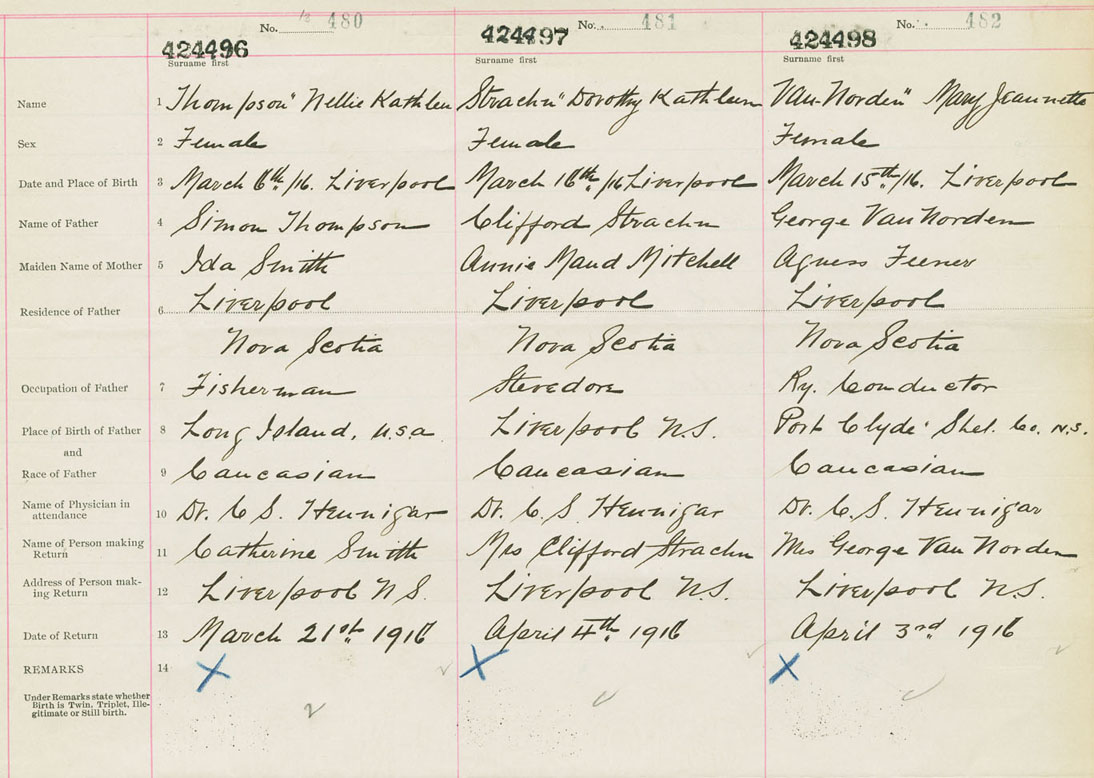 No. 480 No. 481 No. 482
424496 424497 424498
Surname first Surname first Surname first
Name 1 Thompson" Nellie Kathleen Strachn" Dorothy Kathleen Van-Norden" Mary Jeannette
Sex 2 Female Female Female
Date and Place of Birth 3 March 6th/16. Liverpool March 16th/16 Liverpool March 15th/16. Liverpool
Name of Father 4 Simon Thompson Clifford Strachn George Van Norden
Maiden Name of Mother 5 Ida Smith Annie Maud Mitchell Agness Feener
Residence of Father 6 Liverpool Liverpool Liverpool
Nova Scotia Nova Scotia Nova Scotia
Occupation of Father 7 Fisherman Stevedore Ry. Conductor
Place of Birth of Father 8 Long Island, U.S.A Liverpool N.S. Port Clyde Shel. Co. N.S.
and
Race of Father 9 Caucasian Caucasian Caucasian
Name of Physician in
attendance 10 Dr. C S. Hennigar Dr. C. S. Hennigar Dr. C. S. Hennigar
Name of Person making
Return 11 Catherine Smith Mrs Clifford Strachn Mrs George Van Norden
Address of Person mak-
ing Return 12 Liverpool N S. Liverpool N.S. Liverpool N.S.
Date of Return 13 March 21st 1916 April 4th 1916 April 3rd 1916
REMARKS 14
Under Remarks state whether
Birth is Twin, Triplet, Ille-
gitimate or Still birth.